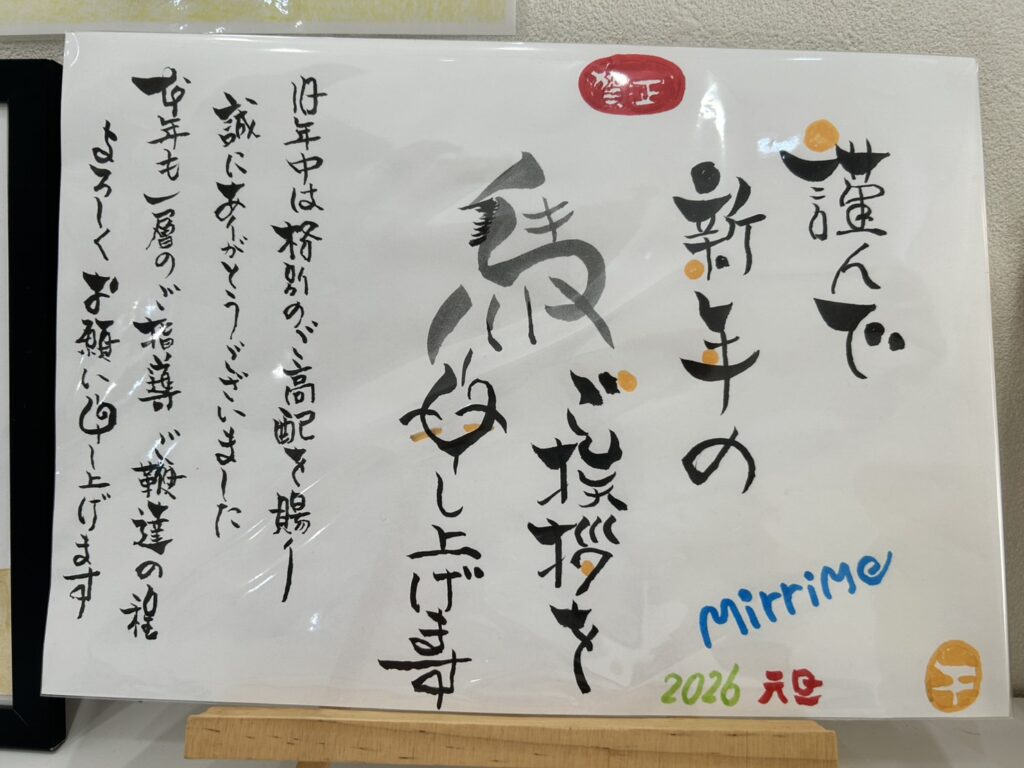 賀正
謹んで
新年の
ご挨拶を
申し上げます
馬
旧年中は格別のご高配を賜り
誠にありがとうございました
本年も一層のご指導ご鞭達の程
よろしくお願い申し上げます
Mirrime
2026 元旦